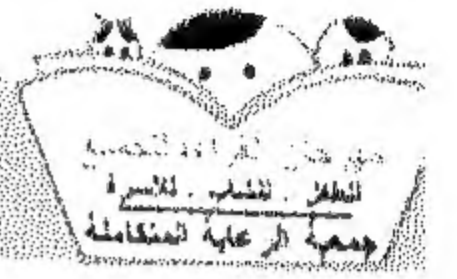 للقراءة للجميع
للطفل . للشباب . للأسرة
جمعية الرعاية المتكاملة